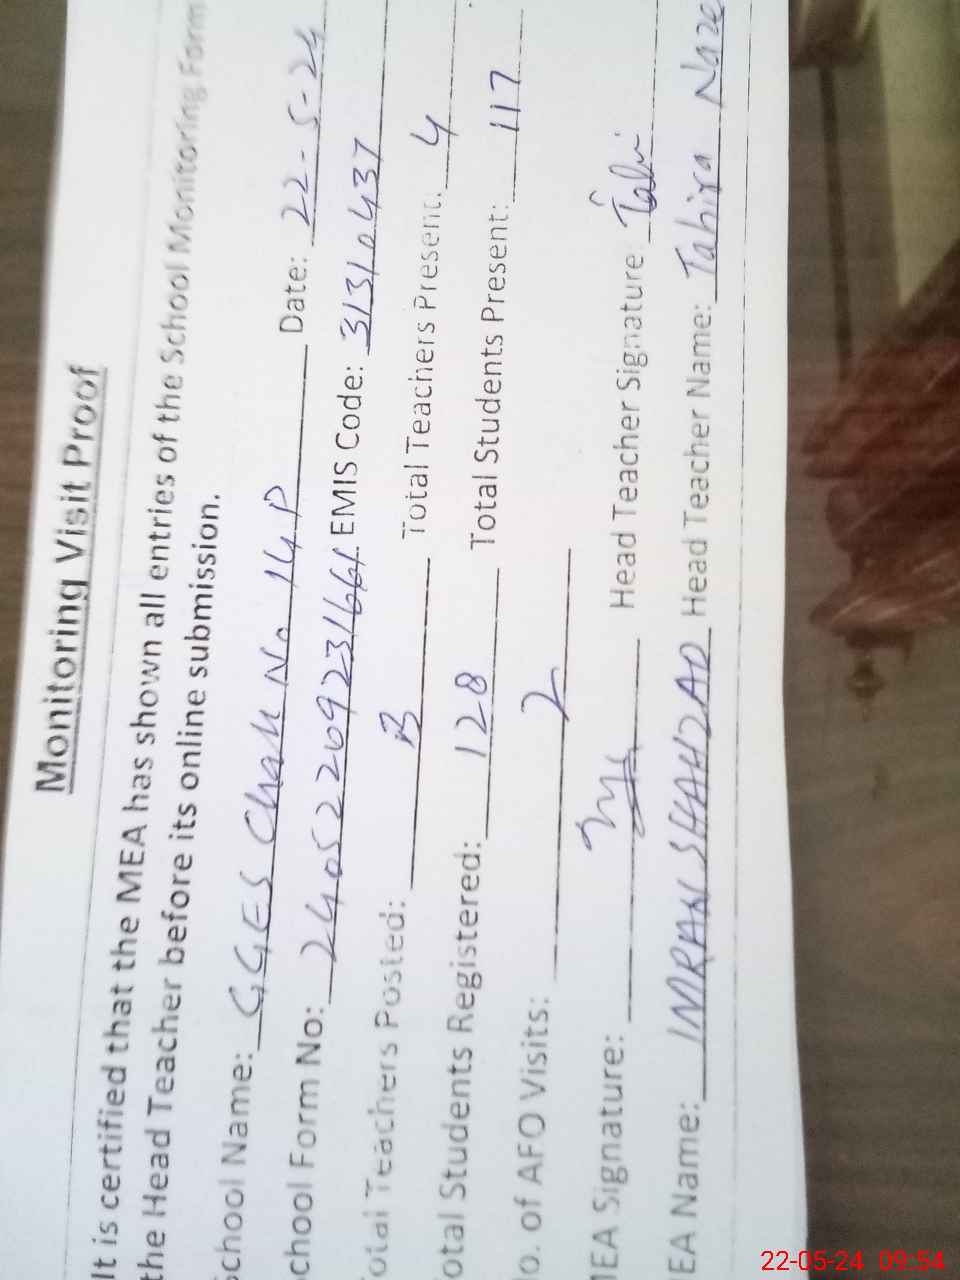 Monitoring Visit Proof
It is certified that the MEA has shown all entries of the School Monitoring Form
the Head Teacher before its online submission.
School Name: GGES Chak No 14P Date: 22-5-24
chool Form No: 24052209231661 EMIS Code: 31310437
Total Teachers Posted: Total Teachers Present: 4
otal Students Registered: 128 Total Students Present: 117
o. of AFO Visits: 2
MEA Signature: Head Teacher Signature
EA Name: IMRAN SHAHZAD Head Teacher Name: Tahira Naze
22-05-24 09:54